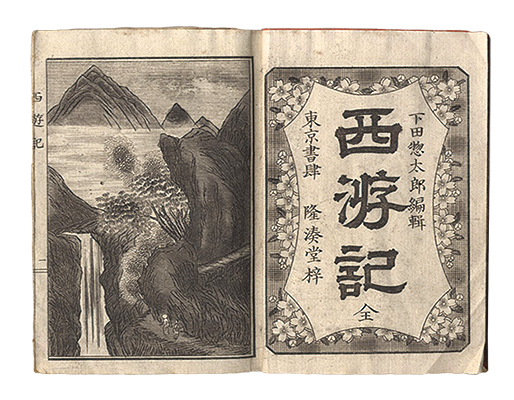 下田惣太郎編輯
西游記
全
東京書肆 隆湊堂梓
西遊記
二